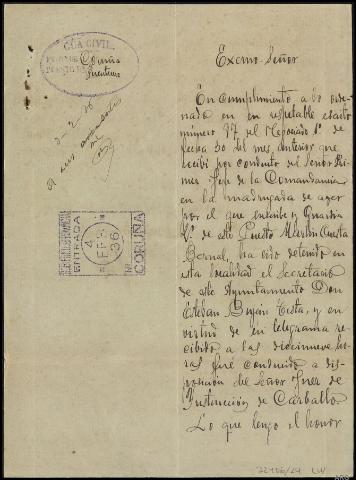 GUA. CIVIL.
Coruña
Excmo. Señor
En cumplimiento a lo orde-
nado en su respetable escrito
número 37 del Negociado 1º de
fecha 30 del mes anterior que
recibí por conducto del Señor Pri-
mer Jefe de la Comandancia
en la madrugada de ayer
por el que suscribe y Guardia
2º de este Puesto Martín Cuesta
Bernal, ha sido detenido en
esta localidad el Secretario
de este Ayuntamiento Don
Esteban Testa, y en
virtud de su telegrama re-
cibido a las diecinueve ho-
ras fué conducido a dis-
posición del Señor Juez de
Instrucción de Carballo.
Lo que tengo el honor
3-2-36
ENTRADA
4 FEB 936
CORUÑA